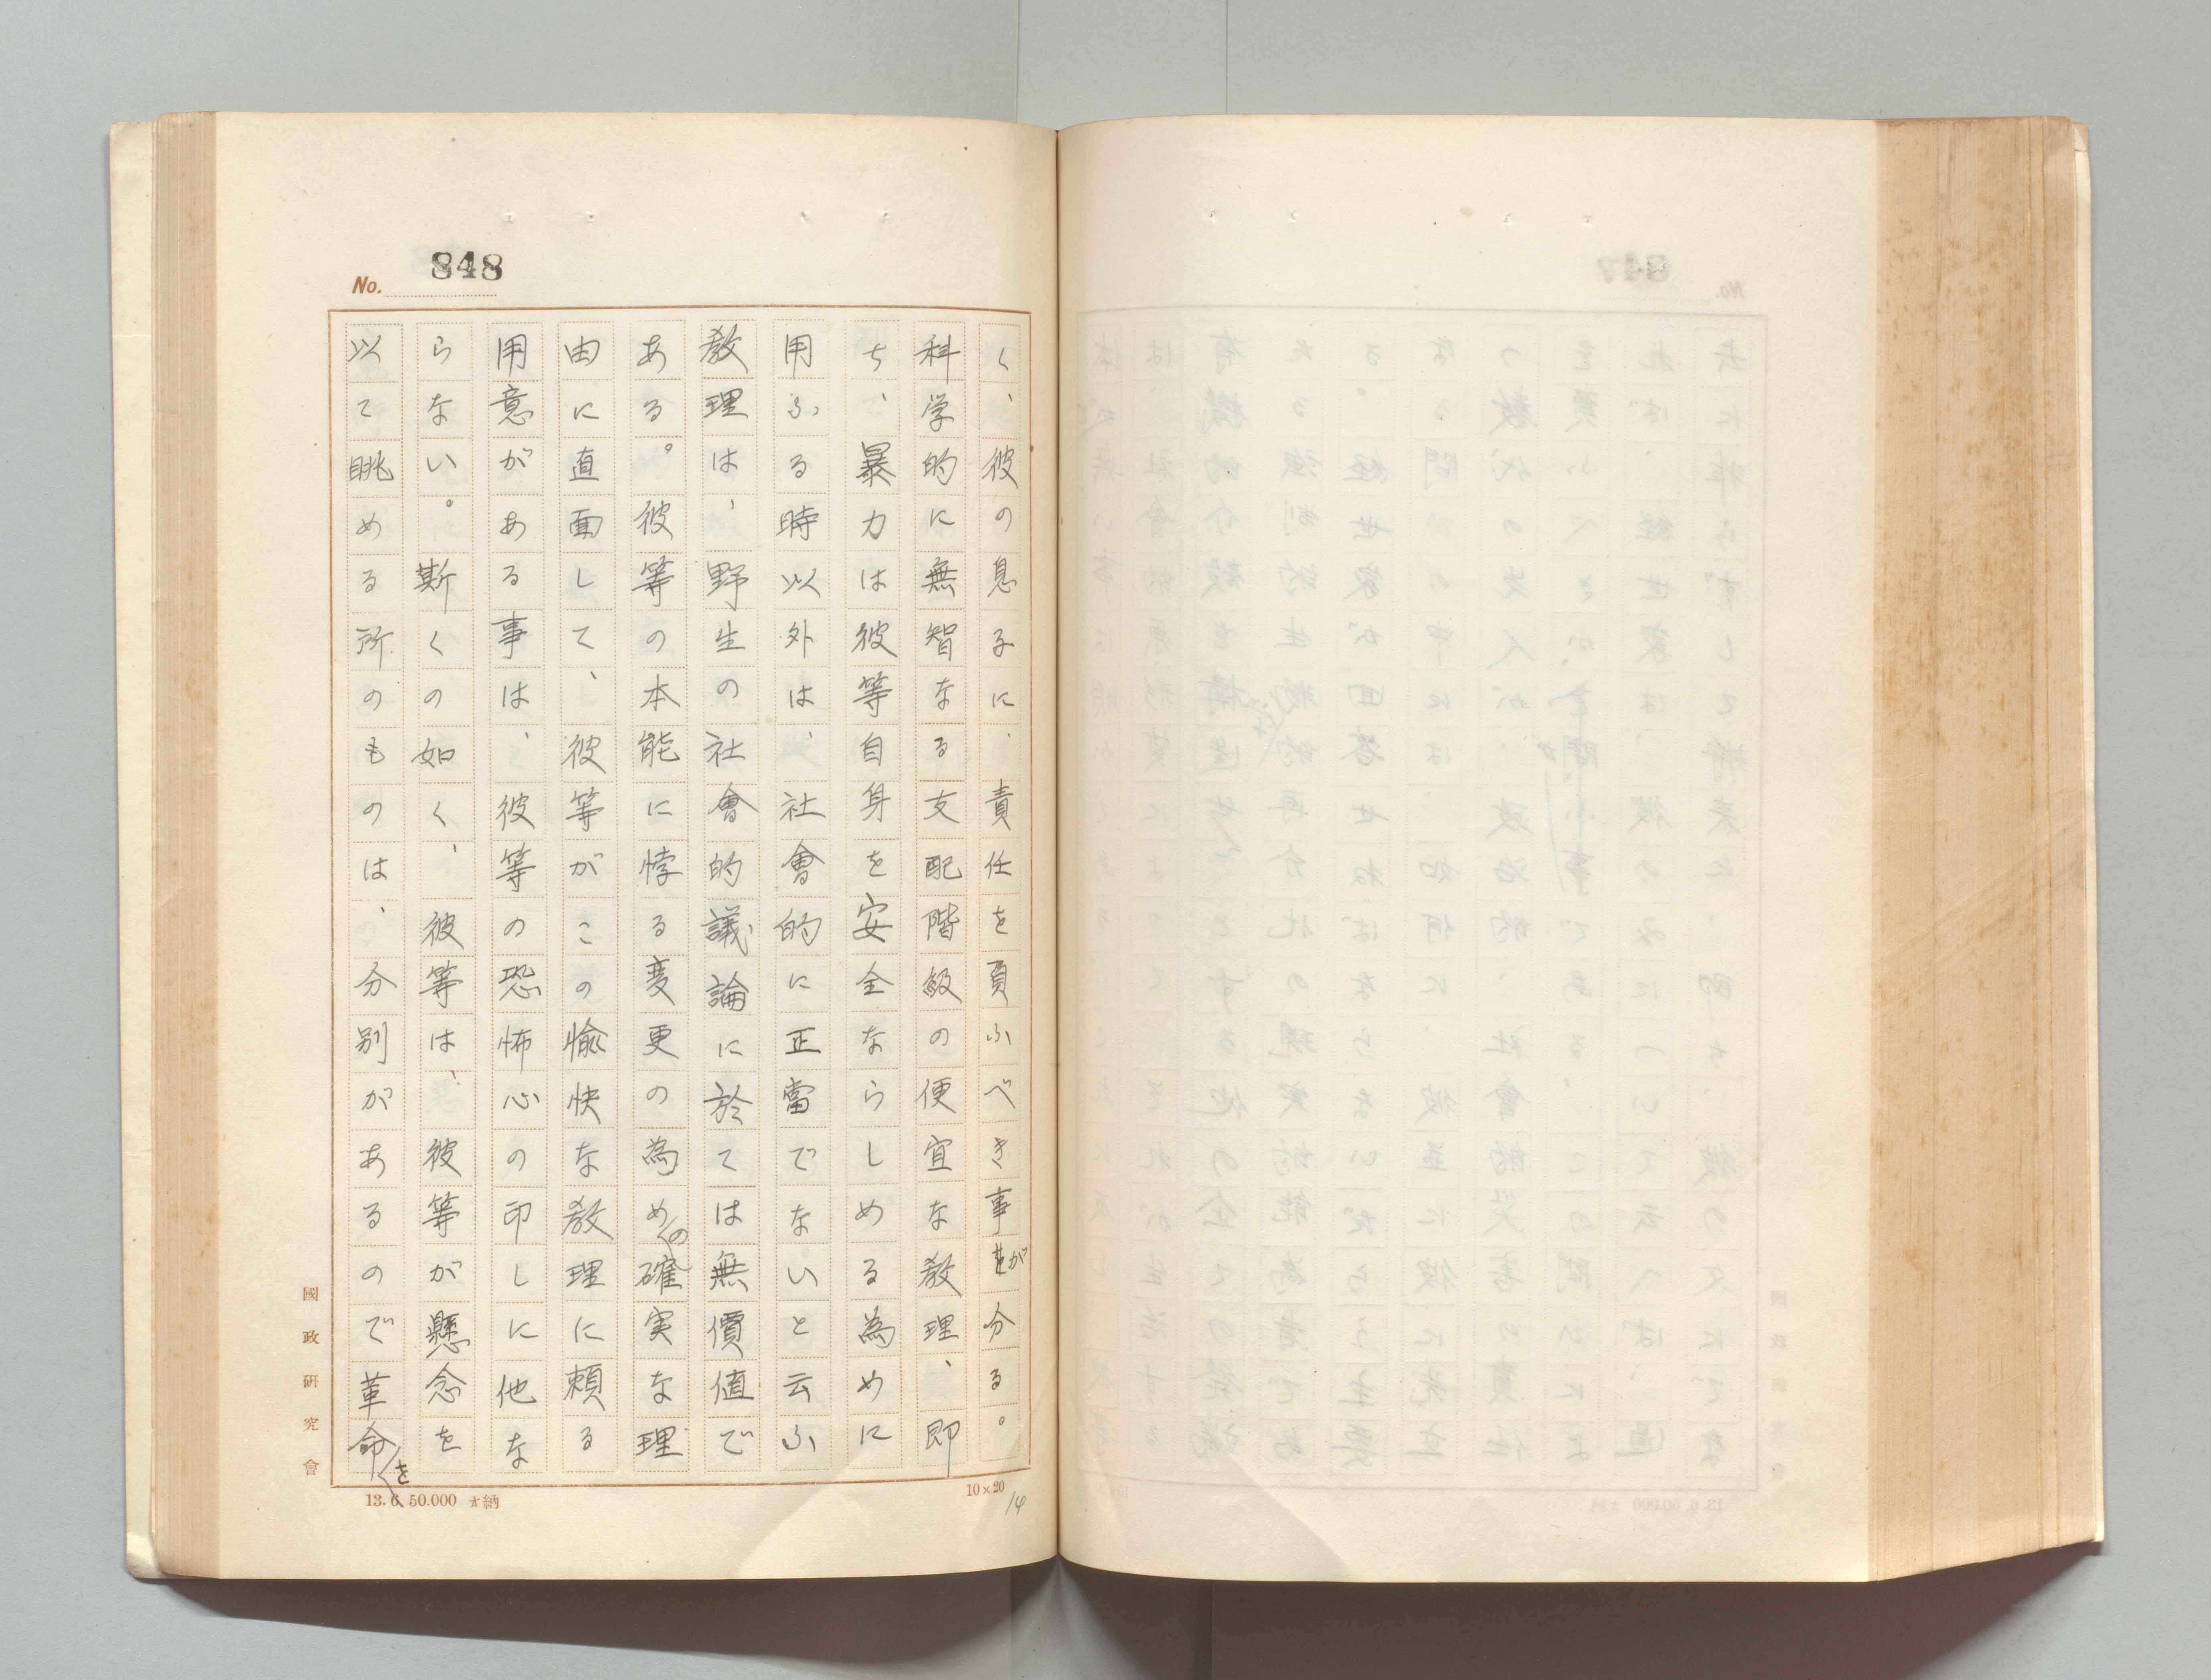 No. 848
く、彼の息子に、責任を負ふべき事が分る。
科学的に無智なる支配階級の便宜な教理、即
ち、暴力は彼等自身を安全ならしめる為めに
用ふる時以外は、社會的に正當でないと云ふ
教理は、野生の社會的議論に於ては無價値で
ある。彼等の本能に悖る変更の為めの確実な理
由に直面して、彼等がこの愉快な教理に頼る
用意がある事は、彼等の恐怖心の印しに他な
らない。斯くの如く、彼等は、彼等が懸念を
以て眺める所のものは、分別があるので革命を
國政研究會
13. 6. 50.000 納
10×20
14